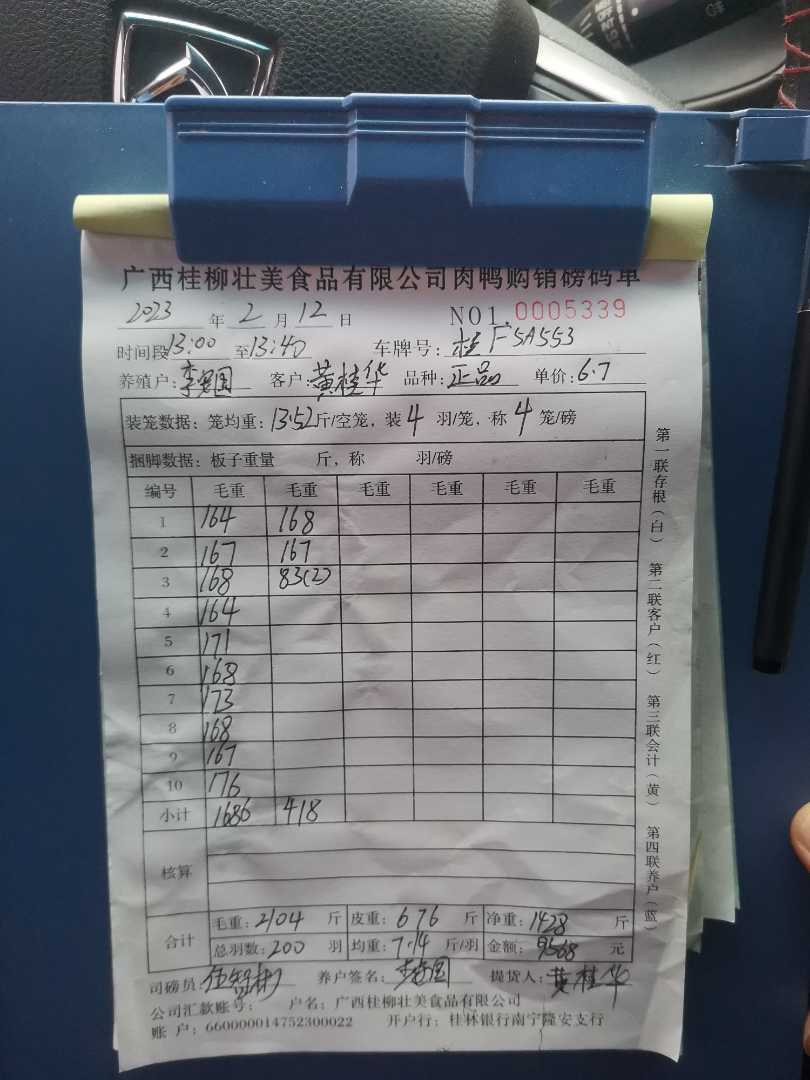 广西桂柳壮美食品有限公司肉鸭购销磅码单
2023 年 2 月 12 日 NO1. 0005339
时间段 13:00 至 13:40 车牌号: 桂F5A553
养殖户: 李 国 客户: 黄桂华 品种: 正品 单价: 6.7
装笼数据: 笼均重: 13.52 斤/空笼, 装 4 羽/笼, 称 4 笼/磅
捆脚数据: 板子重量 斤, 称 羽/磅
编号 毛重 毛重 毛重 毛重 毛重 毛重
1 164 168
2 167 167
3 168 83(2)
4 164
5 171
6 168
7 173
8 168
9 167
10 176
小计 1686 418
核算
合计 毛重: 2104 斤 皮重: 676 斤 净重: 1428 斤
总羽数: 200 羽 均重: 7.14 斤/羽 金额: 9568 元
司磅员: 养户签名: 李 国 提货人: 黄桂华
公司汇款账号: 户名: 广西桂柳壮美食品有限公司
账 户: 660000014752300022 开户行: 桂林银行南宁隆安支行
第一联存根(白) 第二联客户(红) 第三联会计(黄) 第四联养户(蓝)